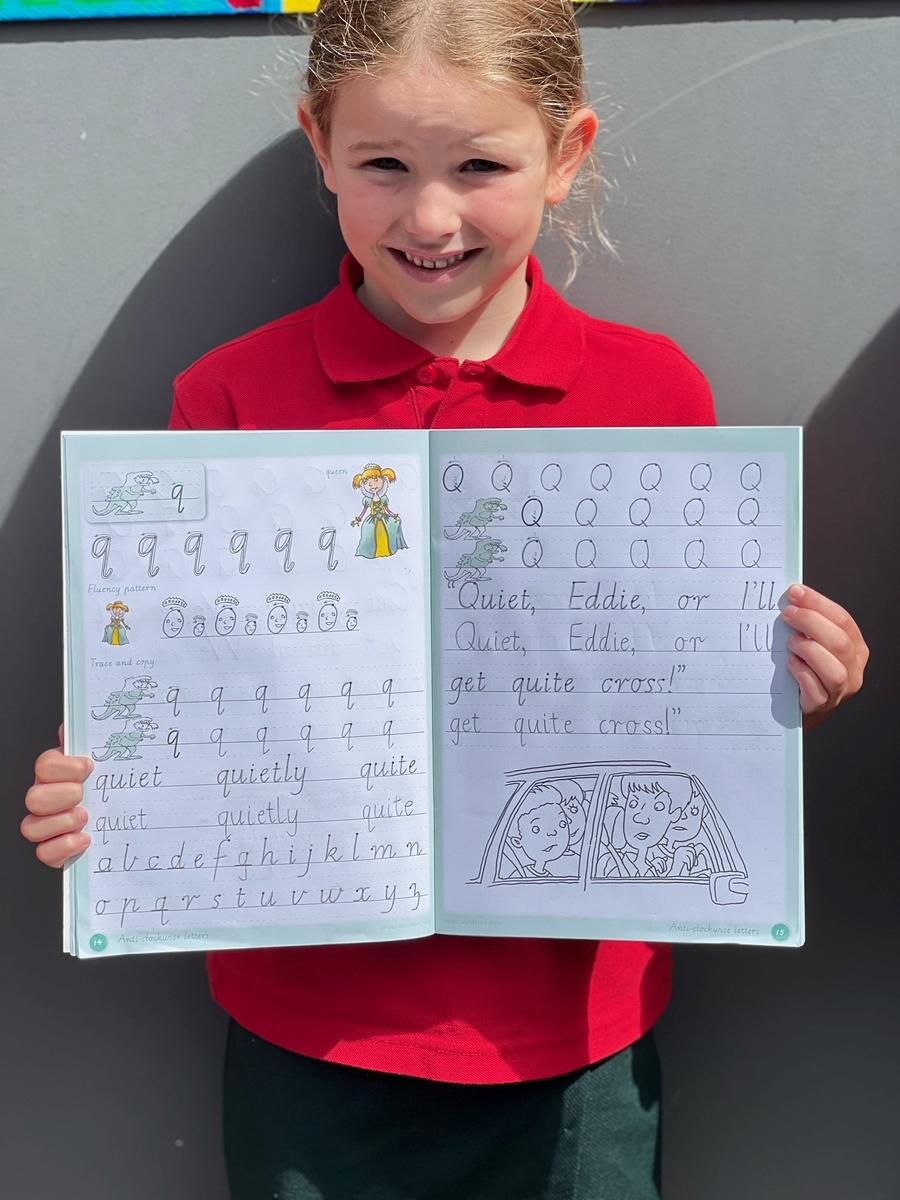 queen
q
q q q q q q
Fluency pattern
Trace and copy
q q q q q q
q q q q q q
quiet quietly quite
quiet quietly quite
a b c d e f g h i j k l m n
o p q r s t u v w x y z
14 Anti-clockwise letters
Q Q Q Q Q Q Q
Q Q Q Q Q
Q Q Q Q Q
Quiet, Eddie, or I'll
Quiet, Eddie, or I'll
get quite cross!”
get quite cross!”
OXFORD UNIVERSITY PRESS
Anti-clockwise letters 15